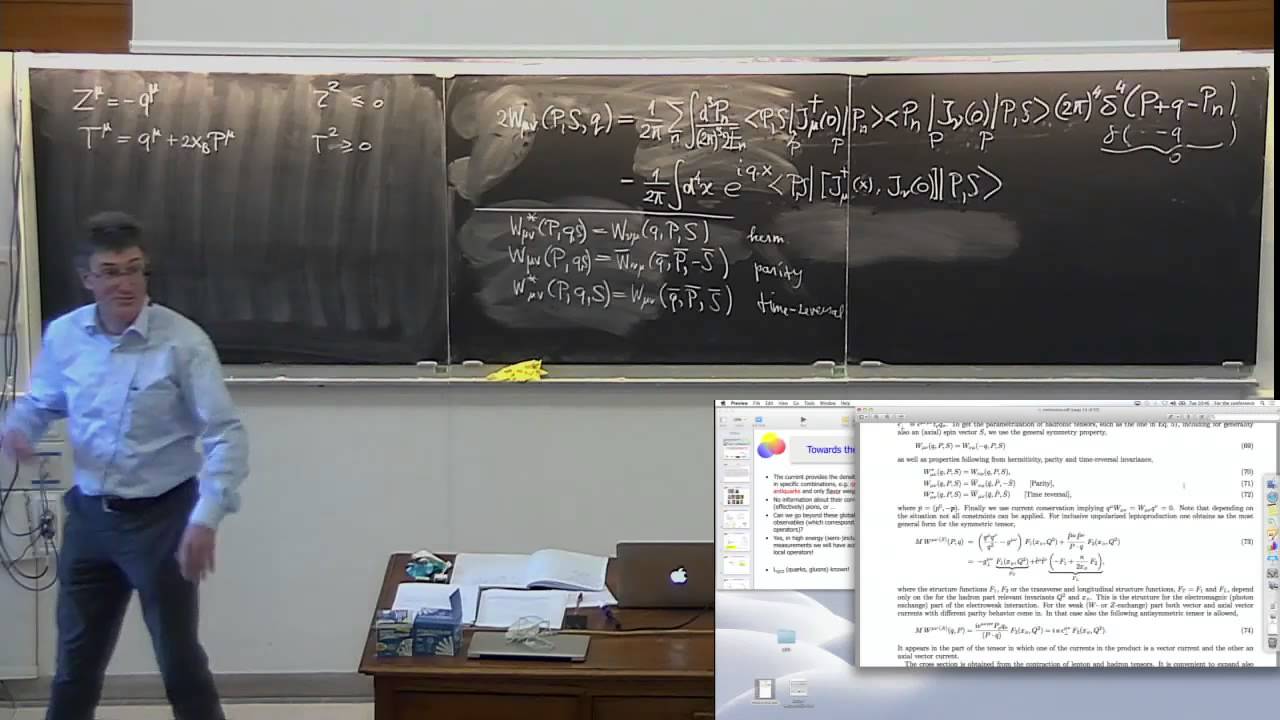 Z^μ = -q^μ    Z² ≤ 0
T^μ = q^μ + 2x_B P^μ    T² ≥ 0
2W_μν(P,S,q) = 1/2π Σ_n ∫ d³P_n/(2π)³2E_n <P,S|J_μ^†(0)|P_n><P_n|J_ν(0)|P,S>(2π)⁴ δ⁴(P+q-P_n)
δ( -q )
0
= 1/2π ∫d⁴x e^{iq.x} <PS|[J_μ^†(x), J_ν(0)]|P,S>
W_μν^*(P,q,S) = W_νμ(q,P,S) herm.
W_μν(P,q,S) = W̄_νμ(q̄,P̄,-S̄) parity
W_μν^*(P,q,S) = W_μν(q̄,P̄,S̄) time-reversal
Preview File Edit View Go Tools Window Help
For the conference
Towards the
• The current provides the densit
in specific combinations, e.g.
antiquarks and only flavor weig
• No information about their cor
(effectively) pions, or ...
• Can we go beyond these global
observables (which correspond
operators)?
• Yes, in high energy (semi-)inclu
measurements we will have ac
local operators!
(quarks, gluons) known!
To get the parametrization of hadronic tensors, such as the one in Eq. 51, including for generally
also an (axial) spin vector S, we use the general symmetry property,
W_μν(q,P,S) = W_νμ(-q,P,S) (69)
as well as properties following from hermiticity, parity and time-reversal invariance,
W*_μν(q,P,S) = W_νμ(q,P,S), (70)
W_μν(q,P,S) = W̄_νμ(q̄,P̄,-S̄) [Parity], (71)
W*_μν(q,P,S) = W̄_μν(q̄,P̄,S̄) [Time reversal], (72)
where p̄ = (p⁰,-p). Finally we use current conservation implying q^μW_μν = W_μνq^ν = 0. Note that depending on
the situation not all constraints can be applied. For inclusive unpolarized leptoproduction one obtains as the most
general form for the symmetric tensor,
(73)
where the structure functions F₁, F₂ or the transverse and longitudinal structure functions, F_T = F₁ and F_L, depend
only on the for the hadron part relevant invariants Q² and x_B. This is the structure for the electromagnetic (photon
exchange) part of the electroweak interaction. For the weak (W- or Z-exchange) part both vector and axial vector
currents with different parity behavior come in. In that case also the following antisymmetric tensor is allowed,
(74)
It appears in the part of the tensor in which one of the currents in the product is a vector current and the other an
axial vector current.
The cross section is obtained from the contraction of lepton and hadron tensors. It is convenient to expand also